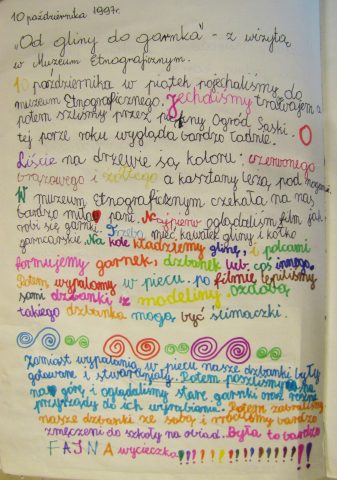 10 października 1997r.
„Od gliny do garnka" - z wizytą
w Muzeum Etnograficznym.
10 października w piątek pojechaliśmy do
muzeum Etnograficznego. Jechaliśmy tramwajem a
potem szliśmy przez piękny Ogród Saski. O
tej porze roku wygląda bardzo ładnie.
Liście na drzewie są koloru: czerwonego
brązowego i żółtego a kasztany leżą pod nogami.
W muzeum Etnograficznym czekała na nas
bardzo miła pani. Najpierw oglądaliśmy film jak
robi się garnki. Trzeba mieć kawałek gliny i kółko
garncarskie. Na kole kładziemy glinę, i palcami
formujemy garnek, dzbanek lub coś innego.
Potem wypalamy w piecu. po filmie lepiliśmy
sami dzbanki z modeliny. ozdobą
takiego dzbanka mogą być ślimaczki.
Zamiast wypalania w piecu nasze dzbanki były
gotowane i stwardniały. Potem poszliśmy na
na górę i oglądaliśmy stare garnki oraz różne
przyrządy do ich wyrabiania. Potem zabraliśmy
nasze dzbanki ze sobą i wróciliśmy bardzo
zmęczeni do szkoły na obiad. Była to bardzo
FAJNA wycieczka!!!!!!!!!!!!!!!!